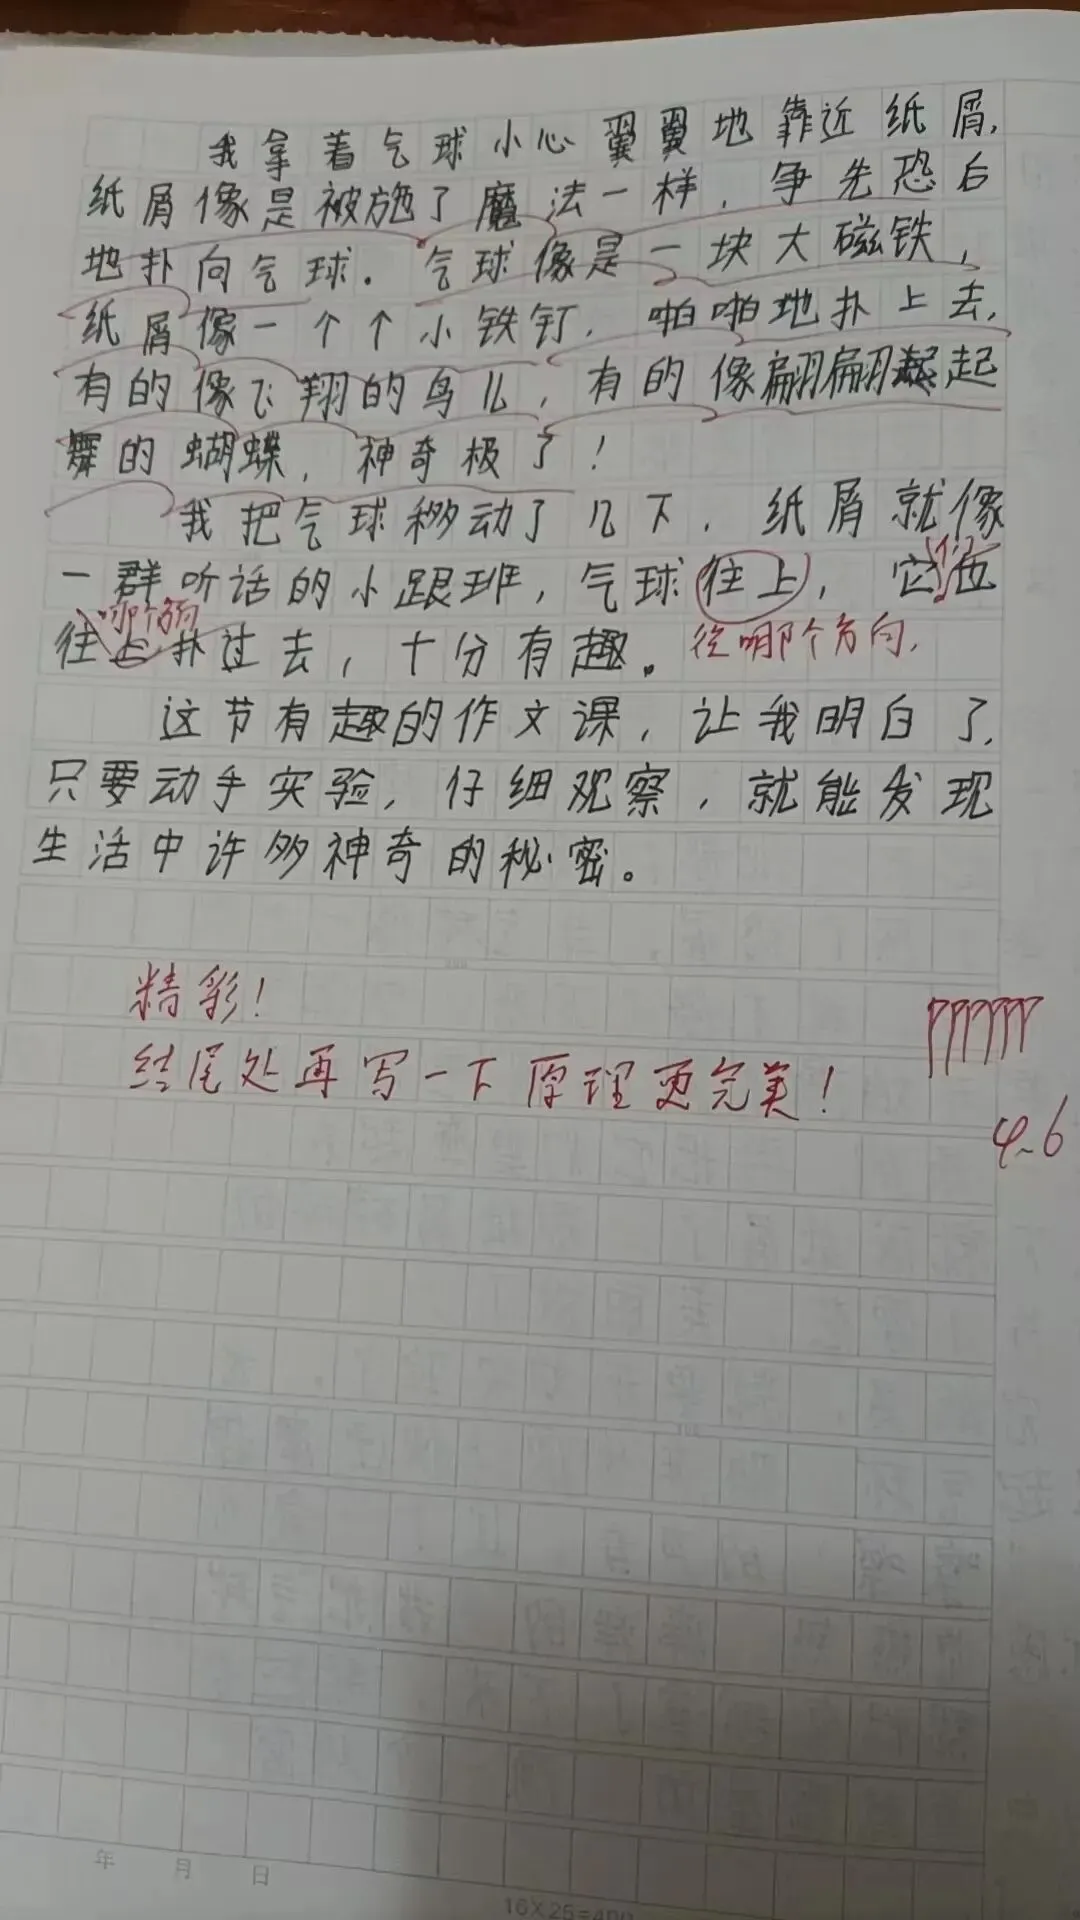 我拿着气球小心翼翼地靠近纸屑,
纸屑像是被施了魔法一样,争先恐后
地扑向气球。气球像是一块大磁铁,
纸屑像一个个小铁钉,啪啪地扑上去,
有的像飞翔的鸟儿,有的像翩翩起
舞的蝴蝶,神奇极了!
我把气球移动了几下,纸屑就像
一群听话的小跟班,气球往上,它
们
哪个方向
往上扑过去,十分有趣。
往哪个方向,
这节有趣的作文课,让我明白了,
只要动手实验,仔细观察,就能发现
生活中许多神奇的秘密。
精彩!
结尾处再写一下原理更完美!
4.6
年 月 日
16×25=400